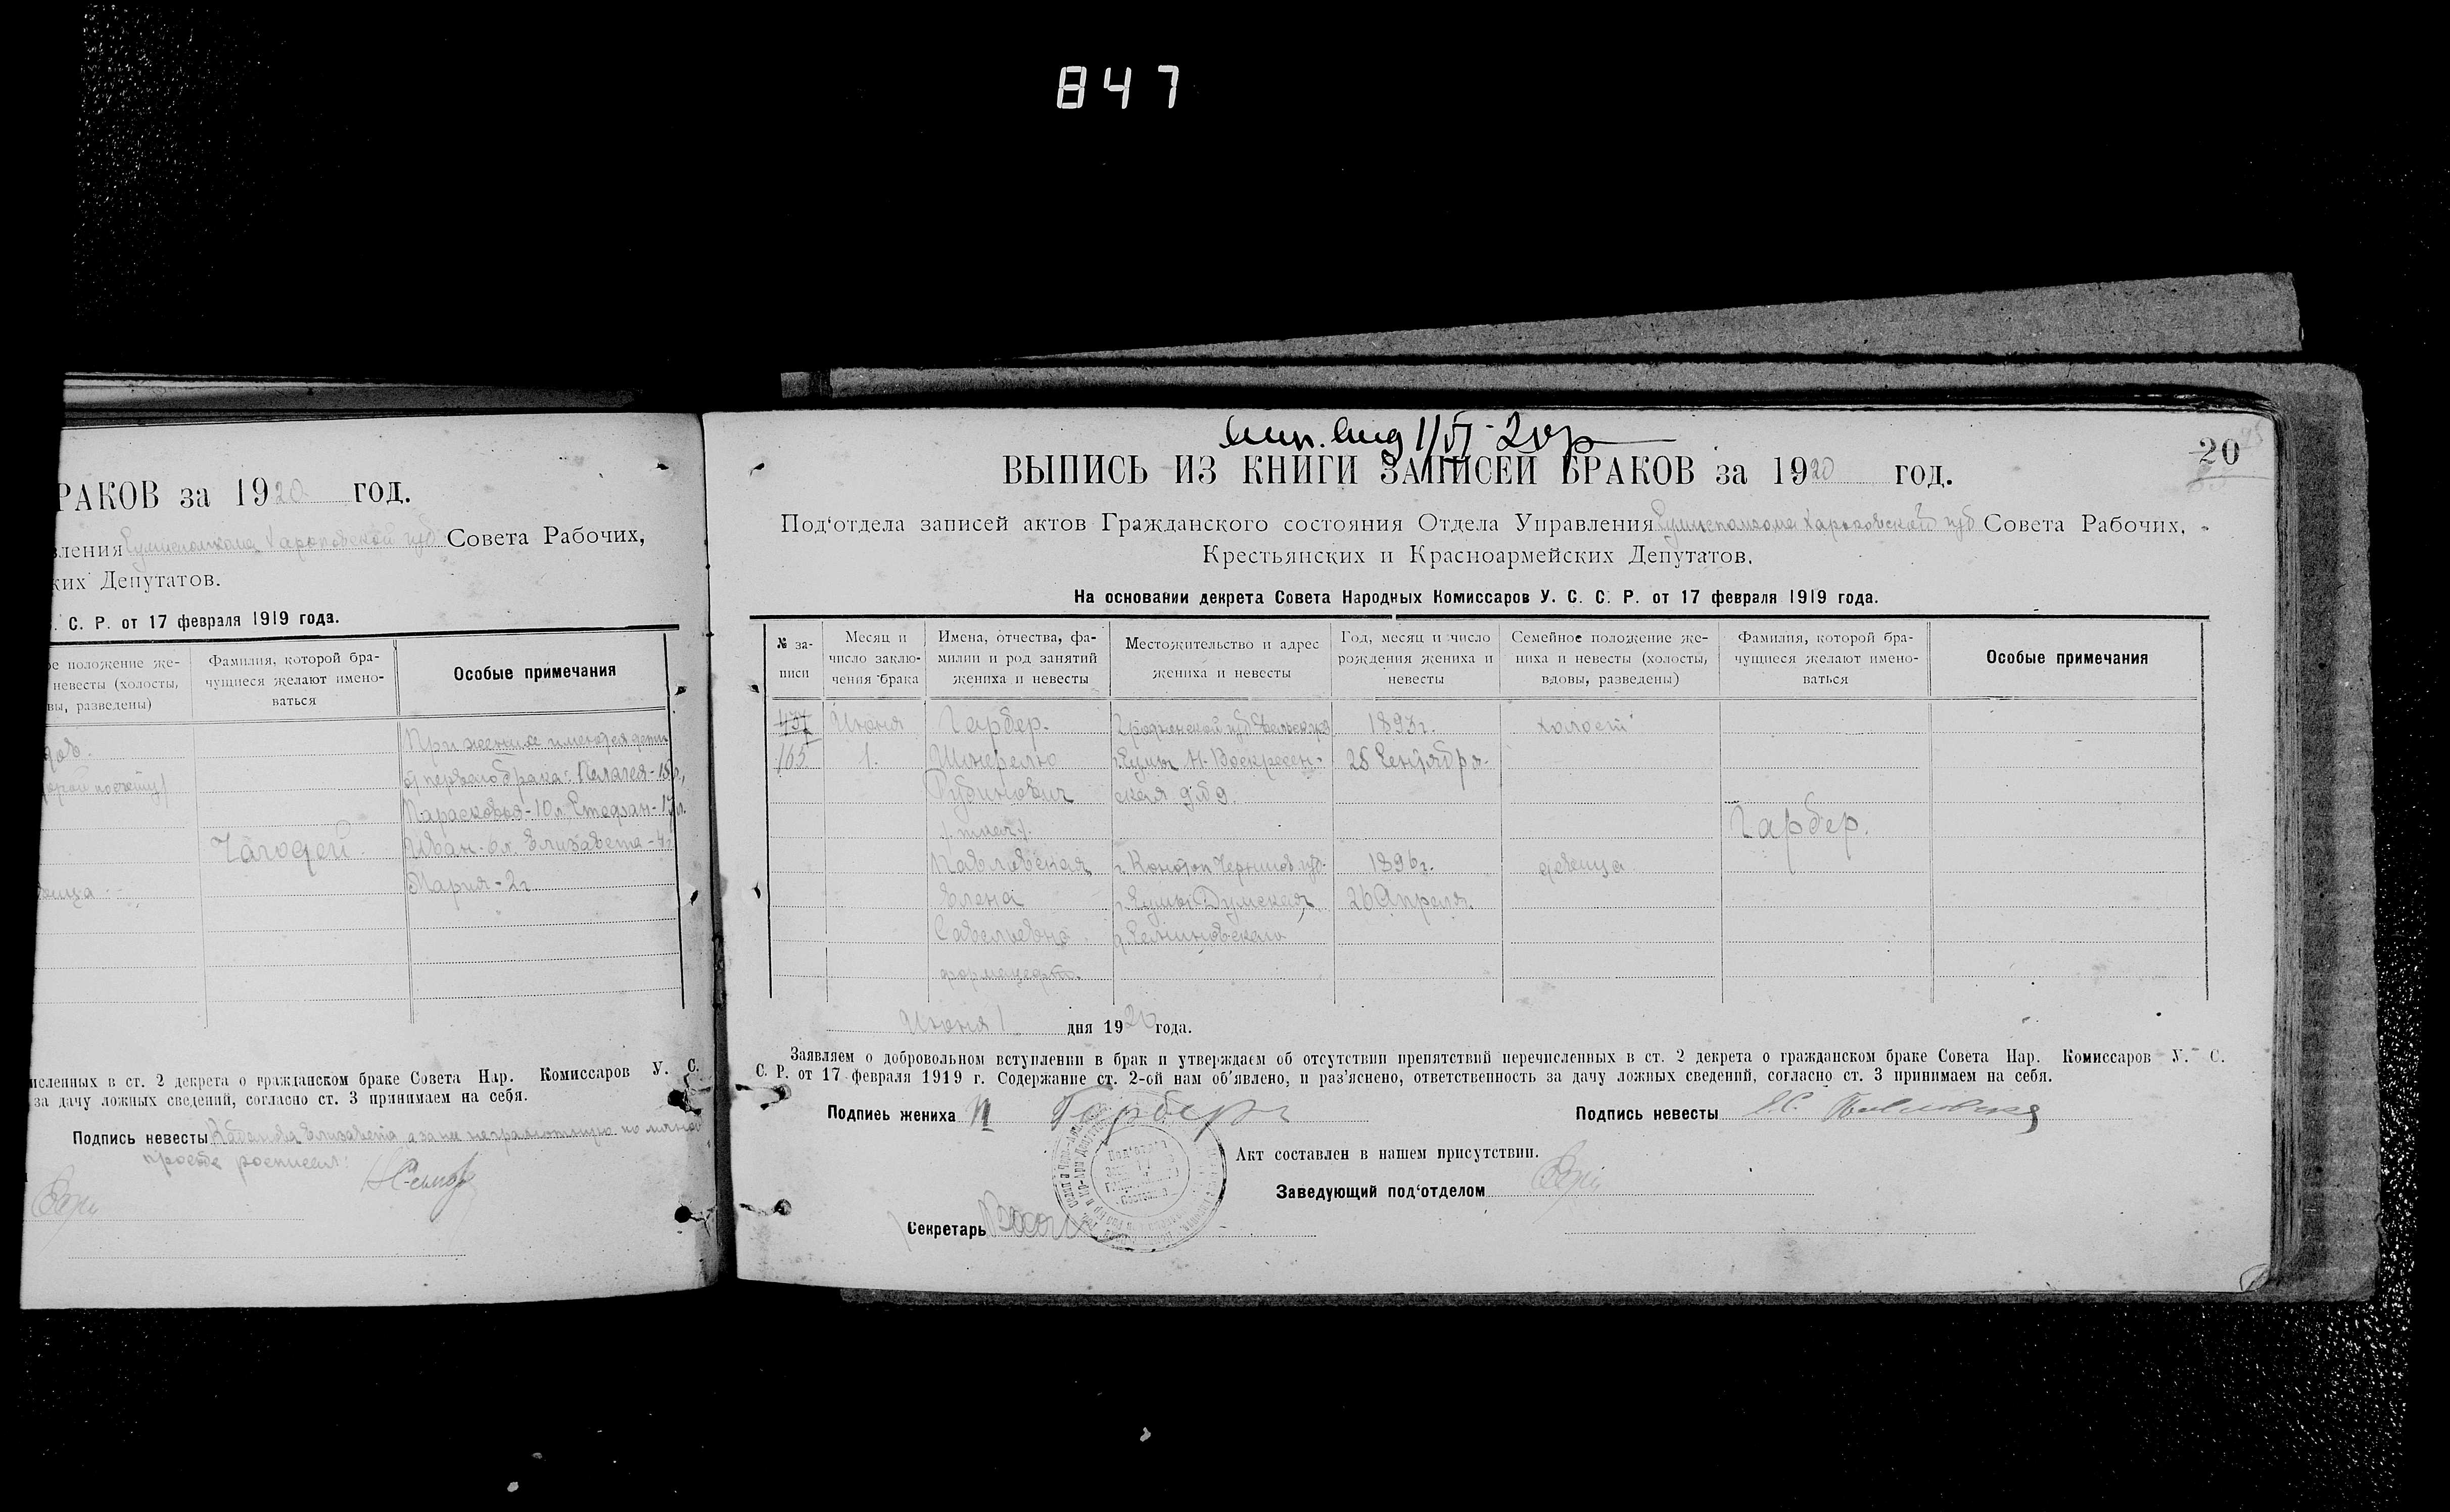 847
РАКОВ за 1920 год.
вления Сумисполкома Харьковской губ Совета Рабочих,
ких Депутатов.
. С. Р. от 17 февраля 1919 года.
ое положение же-
невесты (холосты,
вы, разведены)
Фамилия, которой бра-
чущиеся желают имено-
ваться
Особые примечания
При женихе имеются дети
от первого брака: Палагея-15л,
Парасковья-10л. Стефан-17л.
Иван-6л. Елизавета-4г.
Мария-2г.
численных в ст. 2 декрета о гражданском браке Совета Нар. Комиссаров У. С.
за дачу ложных сведений, согласно ст. 3 принимаем на себя.
Подпись невесты Елизавета а за не неграмотную по личной
просьбе росписал:
1/VI-20
20
ВЫПИСЬ ИЗ КНИГИ ЗАПИСЕЙ БРАКОВ за 1920 год.
Под‘отдела записей актов Гражданского состояния Отдела Управления Сумисполкома Харьковской губ Совета Рабочих,
Крестьянских и Красноармейских Депутатов.
На основании декрета Совета Народных Комиссаров У. С. С. Р. от 17 февраля 1919 года.
№ за-
писи
Месяц и
число заклю-
чения брака
Имена, отчества, фа-
милии и род занятий
жениха и невесты
Местожительство и адрес
жениха и невесты
Год, месяц и число
рождения жениха и
невесты
Семейное положение же-
ниха и невесты (холосты,
вдовы, разведены)
Фамилия, которой бра-
чущиеся желают имено-
ваться
Особые примечания
Июня Гарбер. Гродненской губ 1893г. холост
165 1. г. Сумы Н. Воскресен- 28 Сентября
Рубинович ская д № 9.
Гарбер.
Павловская г. Конотоп Чернигов. губ. 1896г. девица
Елена г. Сумы Думская 26 Апреля.
Савельевна
фармацевт.
Июня 1 дня 1920 года.
Заявляем о добровольном вступлении в брак и утверждаем об отсутствии препятствий перечисленных в ст. 2 декрета о гражданском браке Совета Нар. Комиссаров У. С.
С. Р. от 17 февраля 1919 г. Содержание ст. 2-ой нам об‘явлено, и раз‘яснено, ответственность за дачу ложных сведений, согласно ст. 3 принимаем на себя.
Подпись жениха Гарберг
Подпись невесты Е.С. Павловская
Акт составлен в нашем присутствии.
Заведующий под‘отделом
Секретарь